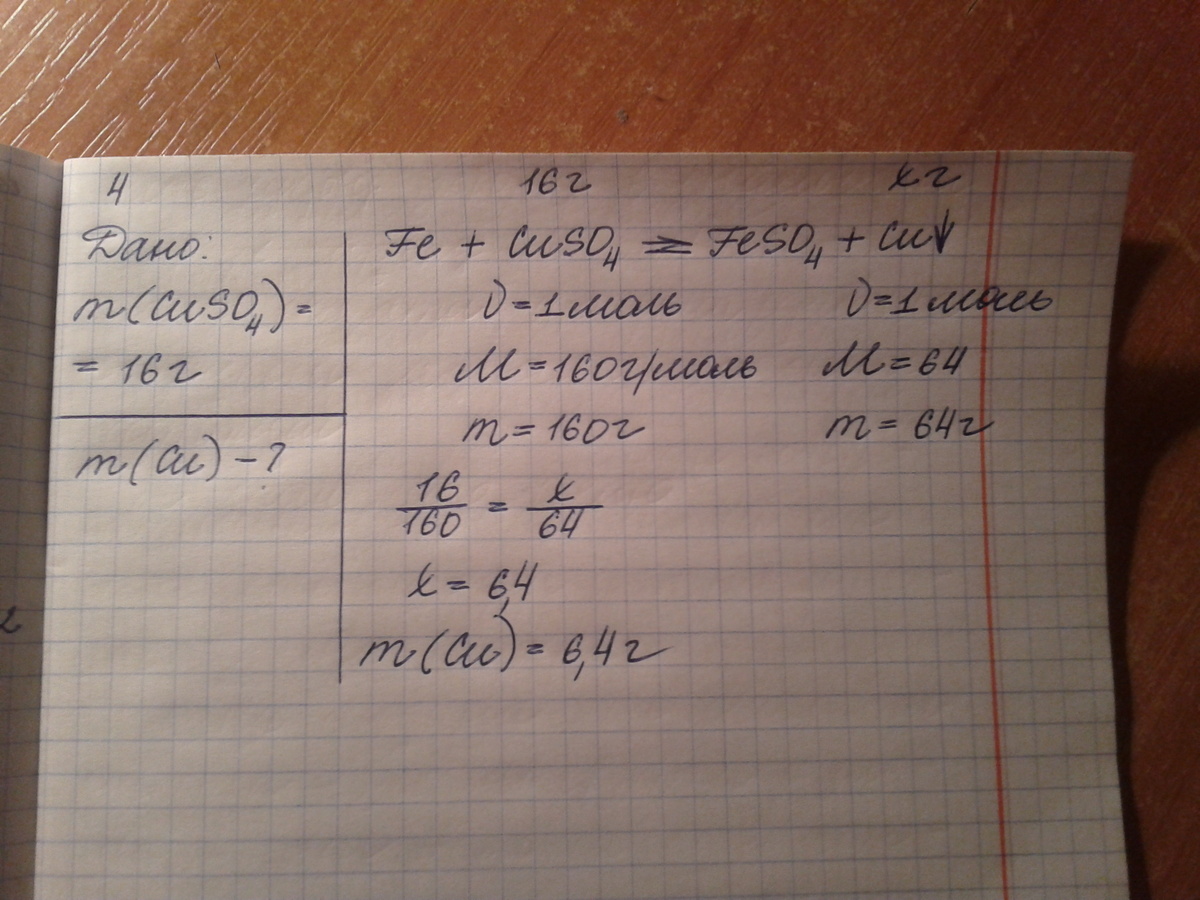 4
Дано:
m(CuSO₄) =
= 16г
m(Cu) – ?
16г xг
Fe + CuSO₄ = FeSO₄ + Cu↓
ν=1моль ν=1моль
M=160г/моль M=64
m=160г m=64г
16/160 = x/64
x = 6,4
m(Cu) = 6,4г